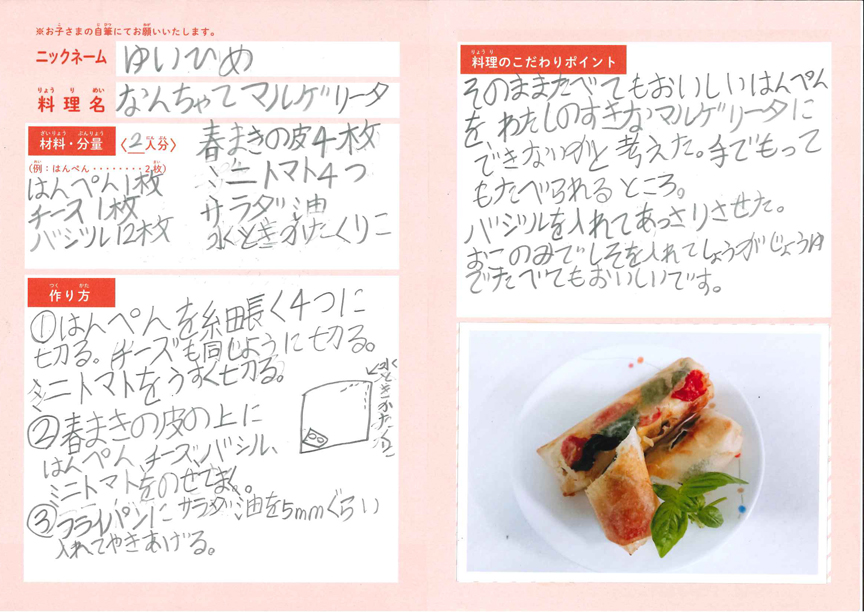 ※お子さまの自筆にてお願いいたします。
ニックネーム ゆいひめ
料理名 なんちゃってマルゲリータ
材料・分量 〈2人分〉
(例：はんぺん・・・・・・・・2枚)
はんぺん1枚
チーズ1枚
バジル12枚
春まきの皮4枚
ミニトマト4つ
サラダ油
水ときかたくりこ
作り方
①はんぺんを細長く4つに
切る。チーズも同じように切る。
ミニトマトをうすく切る。
②春まきの皮の上に
はんぺん、チーズ、バジル、
ミニトマトをのせてまく。
③フライパンにサラダ油を5mmぐらい
入れてやきあげる。
水ときかたくり
料理のこだわりポイント
そのままたべてもおいしいはんぺん
を、わたしのすきなマルゲリータに
できないかと考えた。手でもって
もたべられるところ。
バジルを入れてあっさりさせた。
おこのみでしそを入れてしょうがじょうゆ
でたべてもおいしいです。